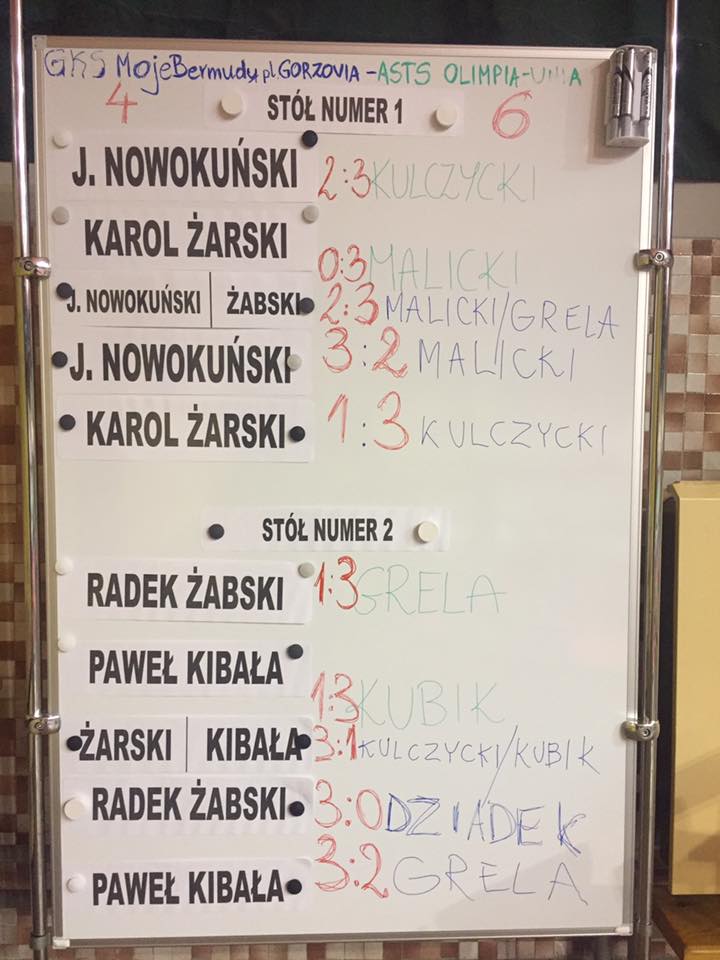 GKS MojeBermudy.pl GORZOVIA - ASTS OLIMPIA-UNIA
4 STÓŁ NUMER 1 6
J. NOWOKUŃSKI 2:3 KULCZYCKI
KAROL ŻARSKI 0:3 MALICKI
J. NOWOKUŃSKI | ŻABSKI 2:3 MALICKI/GRELA
J. NOWOKUŃSKI 3:2 MALICKI
KAROL ŻARSKI 1:3 KULCZYCKI
STÓŁ NUMER 2
RADEK ŻABSKI 1:3 GRELA
PAWEŁ KIBAŁA 1:3 KUBIK
ŻARSKI | KIBAŁA 3:1 KULCZYCKI/KUBIK
RADEK ŻABSKI 3:0 DZIADEK
PAWEŁ KIBAŁA 3:2 GRELA